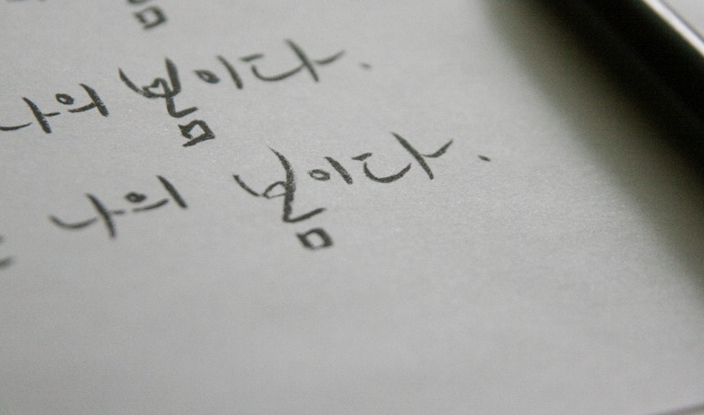 나의 봄이다.
나의 봄이다.